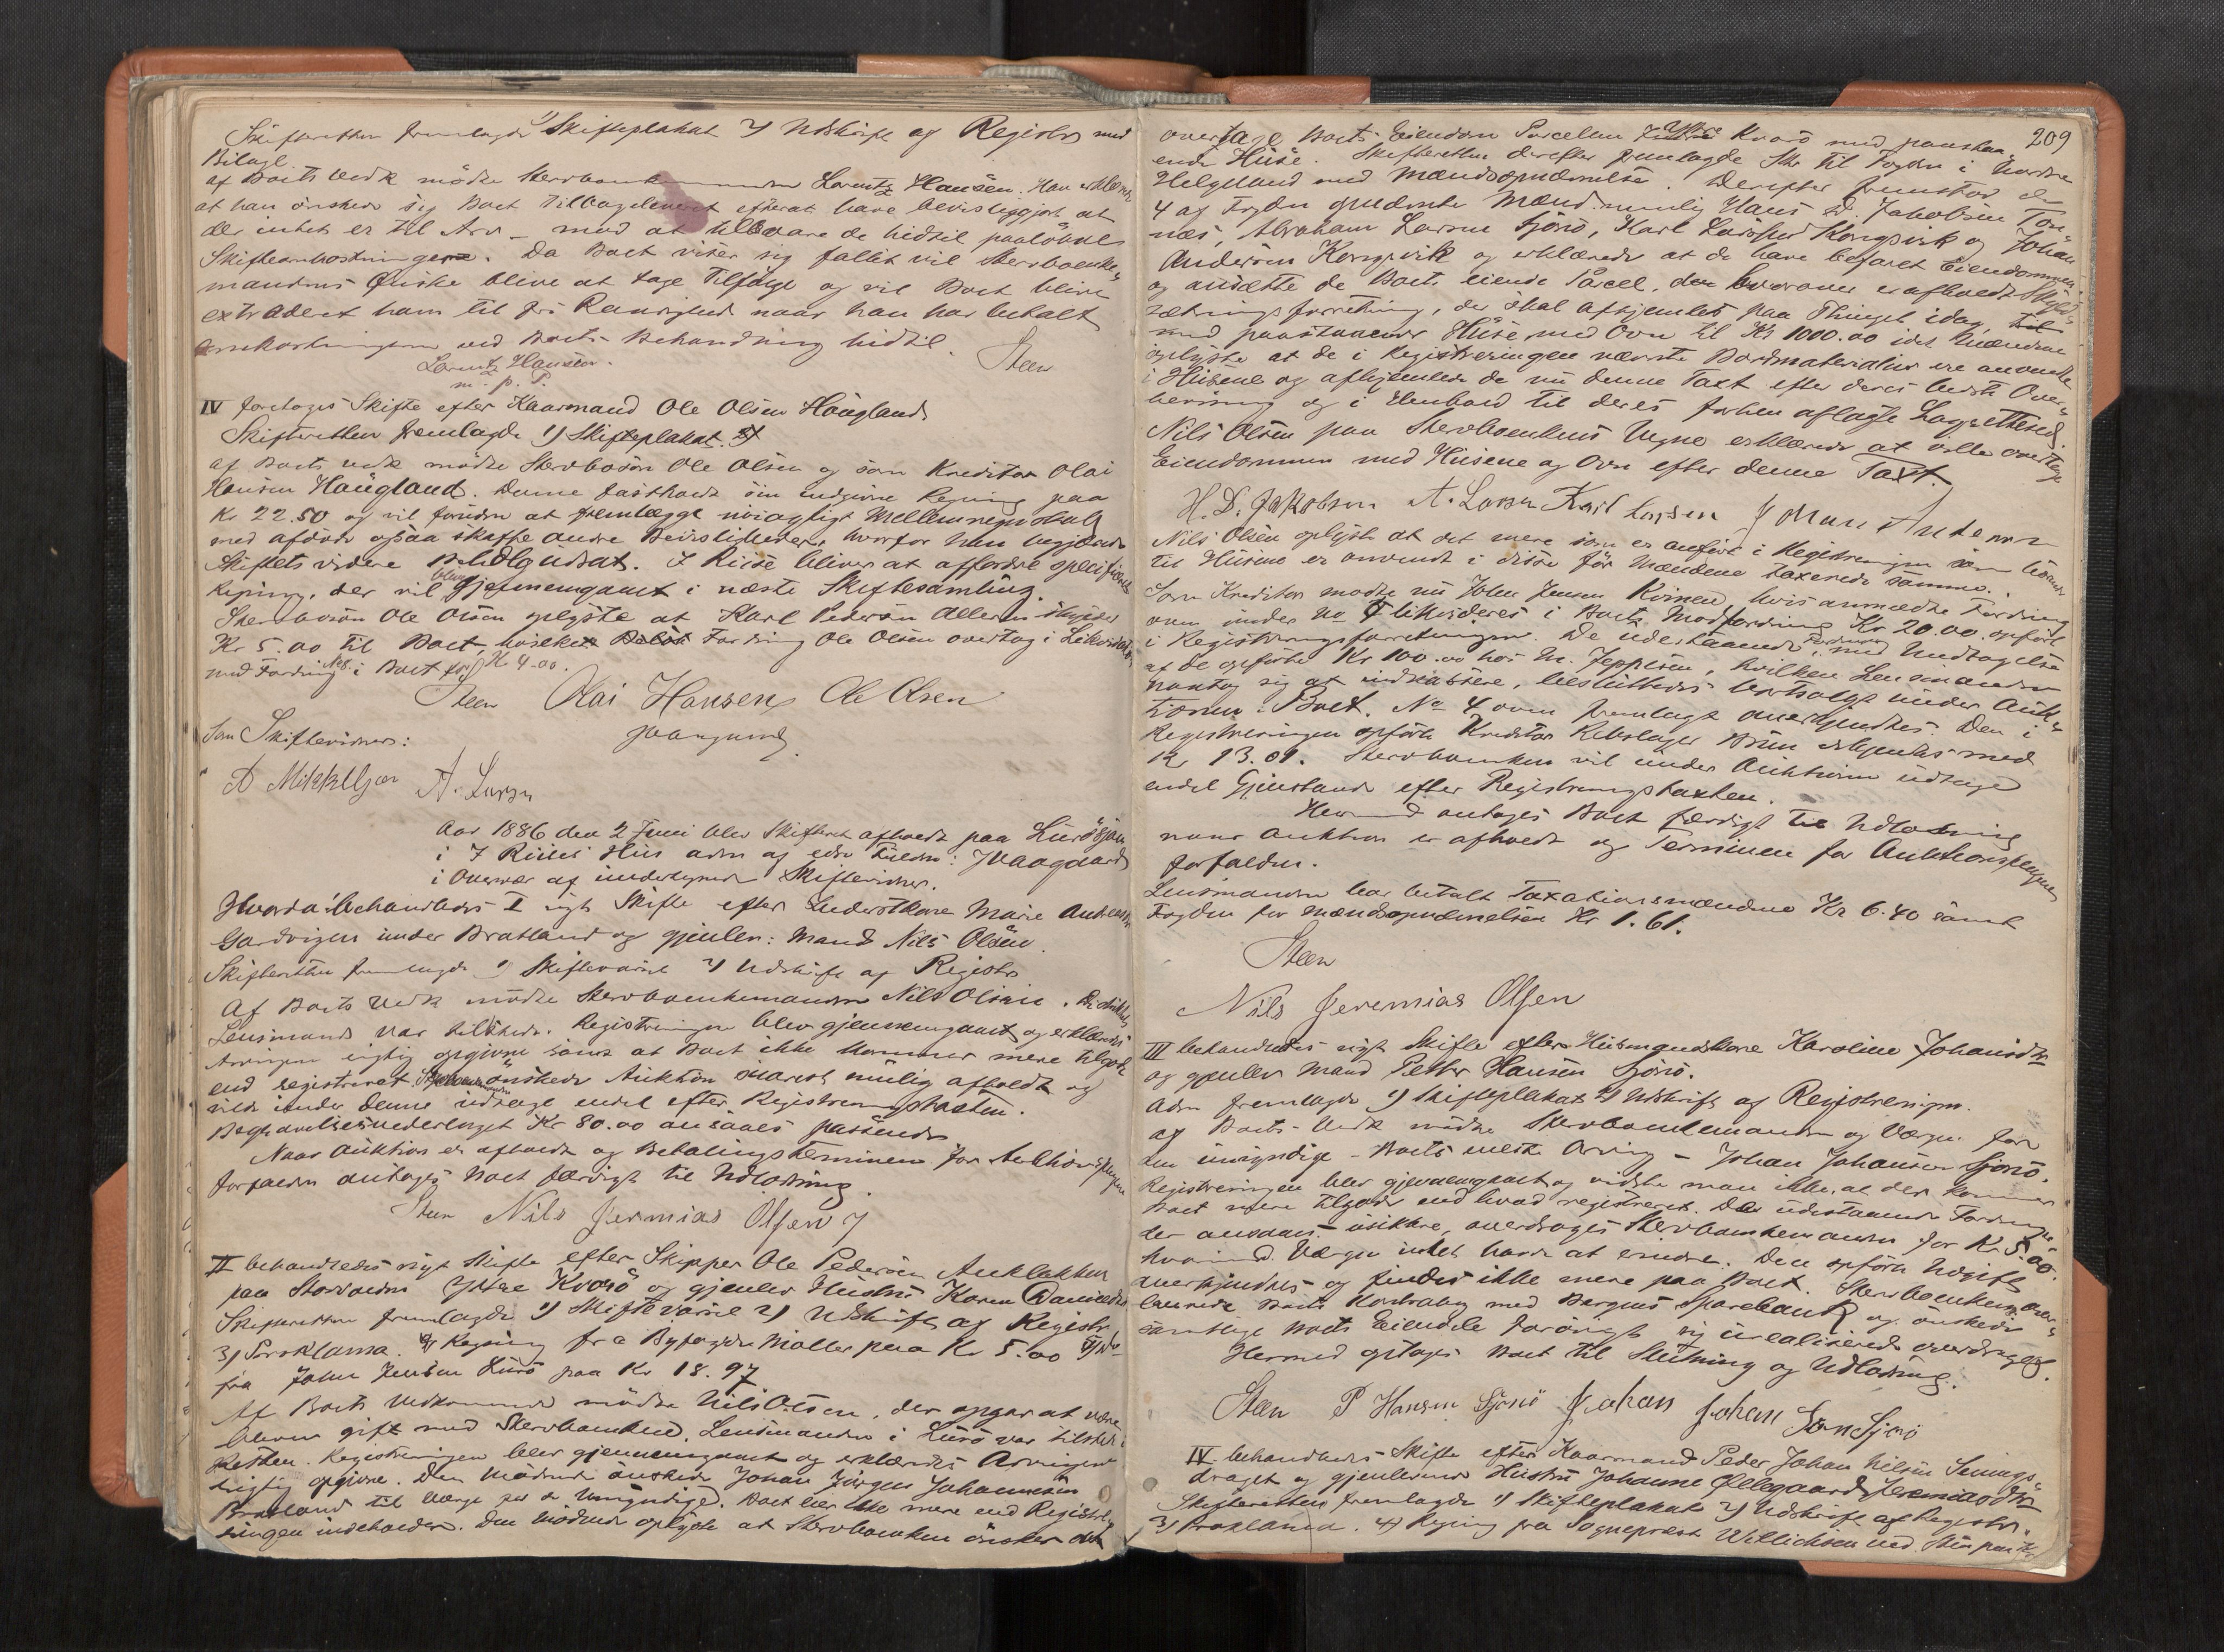 Skifteretten fremlagde 1) Skifteplakat 2) Udskrift af Registr. med
Bilage.
af Boets Vedk mödte Stervboenkemanden Lorentz Hansen. Han erklærede
at han önskede sig Boet tilbageleveret efterat have bevisliggjort at
der intet er til Arv - mod at udrede de hidtil paalöbne
Skifteomkostningerne. Da Boet viser sig fallit vil Stervboenke-
mandens Önske blive at tage tilfölge og vil Boet blive
extraderet ham til fri Raadighed naar han har betalt
Omkostningerne ved Boets Behandling hidtil.
Lorentz Hansen. Steen
m. p. P.
IV foretoges Skifte efter Kaarmand Ole Olsen Haugland
Skifteretten fremlagde 1) Skifteplakat.
af Boets Vedk mödte Stervbosön Ole Olsen og som Kreditor Olai
Hansen Haugland. Denne fastholdt sin indgivne Regning paa
Kr 22.50 og vil foruden at fremlægge nöiagtigt Mellemregnskab
med afdöde ogsaa skaffe andre Bevisligheder, hvorfor han begjærede
Skiftets videre Behdlg udsat. I Reise bliver at affordre specificeret
Regning, der vil blive gjennemgaaet i næste Skiftesamling.
Stervbosön Ole Olsen oplyste at Karl Pedersen Alleren skylder
Kr 5.00 til Boet, hvilken Fordring Ole Olsen overtog i Likvidation
med Fordring No 8. i Boet for Kr 4.00.
Steen Olai Hansen Ole Olsen
Haugland
Som Skiftevidner:
A Mikkelsen A. Larsen
Aar 1886 den 2 Juni blev Skifteret afholdt paa Lurösjöen
i I Reises Hus adm af edsv Fuldm: J Vaagaard
i Overvær af undertegnede Skiftevidner.
Hvorda: behandledes I sigt Skifte efter Inderstkone Marie Andreasdtr
Gardvigen under Bratland og gjenlev: Mand Nils Olsen.
Skifteretten fremlagde 1) Skiftevarsel 2) Udskrift af Registr
Af Boets Vedk mödte Stervboenkemanden Nils Olsen. Distriktets
Lensmand var tilstede. Registreringen blev gjennemgaaet og erklæredes
Arvingerne rigtig opgivne samt at Boet ikke kommer mere tilgode
end registreret. Stervboenkemanden önskede Auktion snarest mulig afholdt og
vilde under denne udtage endel efter Registreringstaxten.
Begravelsesvederlaget Kr 80.00 ansaaes passende
Naar Auktion er afholdt og Betalingsterminen for Auktionspengene
forfalden antages Boet færdigt til Udlodning.
Steen Nils Jeremias Olsen
II behandledes sigt Skifte efter Skipper Ole Pedersen Aaklakken
paa Storvolden Yttre Kvarö og gjenlev Hustru Karen Danielsdtr
Skifteretten fremlagde 1) Skiftevarsel 2) Udskrift af Registr
3) Proklama. 4) Regning fra Byfogden Möller paa Kr 5.00 5) do
fra Johan Jensen Lurö paa Kr 18.97
Af Boets Vedkommende mödte Nils Olsen, der opgav at være
bleven gift med Stervboenken. Lensmanden i Lurö var tilstede i
Retten. Registreringen blev gjennemgaaet og erklæredes Arvingerne
rigtig opgivne. Den Mödende önskede Johan Jörgen Johannesen
Bratland til Værge for de Umyndige. Boet eier ikke mere end Registre-
ringen indeholder. Den Mödende oplyste at Stervboenken önsker at
209
overtage Boets Eiendom Parcelen Yttre Kvarö med paastaa-
ende Huse. Skifteretten derefter fremlagde Skr til Fogden i Nordre
Helgeland med Mændsopnævnelse. Derefter fremstod de
4 af Fogden opnævnte Mænd nemlig Hans D. Jakobsen Ton-
næs, Abraham Larsen Sjonö, Karl Larsen Kongsvik og Johan
Andersen Kongsvik og erklærede at de have befaret Eiendommen
og ansætte de Boets eiende Parcel, den hvorover er afholdt Skyld-
sætningsforretning, der skal afhjemles paa Thinget idag,
med paastaaende Huse med Ovn til Kr 1000.00 idet Mændene
oplyste at de i Registreringen nævnte Bordmaterialier ere anvendte
i Husene og afhjemlede de nu denne Taxt efter deres bedste Over-
bevisning og i Henhold til deres forhen aflagte Lagretteed.
Nils Olsen paa Stervboenkens Vegne erklærede at ville overtage
Eiendommen med Husene og Ovn efter denne Taxt.
H. D. Jakobsen A. Larsen Karl Larsen Johan Andersen
Nils Olsen oplyste at det mere som er anfört i Registreringen som hörende
til Husene er anvendt i disse för Mændene taxerede samme.
Som Kreditor mödte nu Johan Jensen Kvinen, hvis anmeldte Fordring
oven under No 5 likvideres i Boets Modfordring Kr 20.00 opfört
i Registreringsforretningen. De udestaaende Fordringer med Undtagelse
af de opförte Kr 100.00 hos M. Jeppesen, hvilken Lensmanden
paatog sig at indkassere, besluttedes bortsolgt under Auk-
tionen i Boet. No 4 oven fremlagt anerkjendtes. Den i
Registreringen opförte Kreditor Kebslager Brun erkjendtes med
Kr 13.01. Stervboenken vil under Auktionen udtage
endel Gjenstande efter Registreringstaxten.
Hermed antages Boet færdigt til Udlodning
naar Auktion er afholdt og Terminen for Auktionspengene
forfalden.
Lensmanden har betalt Taxationsmændene Kr 6.40 samt
Fogden for Mændsopnævnelsen Kr 1.61.
Steen
Nils Jeremias Olsen
III behandledes sigt Skifte efter Husmandskone Karoline Johansdtr
og gjenlev Mand Petter Hansen Sjonö.
Adm fremlagde 1) Skifteplakat 2) Udskrift af Registreringen.
af Boets Vedk mödte Stervboenkemanden og Værgen for
den umyndige - Boets eneste Arving - Johan Johansen Sjonö.
Registreringen blev gjennemgaaet og vidste man ikke, at der kommer
Boet mere tilgode end hvad registreret. De udestaaende Fordringer
der ansaaes usikkre, overdroges Stervboenkemanden for Kr 5.00.
hvorimod Værgen intet havde at erindre. Den opförte Udgift
anerkjendtes og findes ikke mere paa Boet. Stervboenkemanden over-
leverede Boets Kontrabog med Bergens Sparebank og önskede
samtlige Boets Eiendele forövrigt sig urealiserede overdraget.
Hermed optages Boet til Slutning og Udlodning.
Steen P Hansen Sjonö Johan Johansen Sjonö
IV behandledes Skifte efter Kaarmand Peder Johan Nilsen Sennings-
draget og gjenlevende Hustru Johanne Ollegaard Jeremiasdtr
Skifteretten fremlagde 1) Skifteplakat 2) Udskrift af Registr.
3) Proklama. 4) Regning fra Sogneprest Wellichsen ved Steen paa Kr